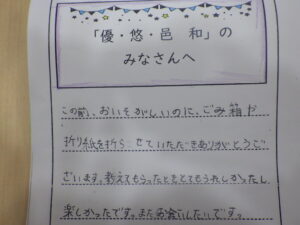 「優・悠・邑 和」の
みなさんへ
この前、おいそがしいのに、ごみ箱や
折り紙を折らせていただきありがとうご
ざいます。教えてもらったときとてもうれしかったし
楽しかったです。またお会いしたいです。